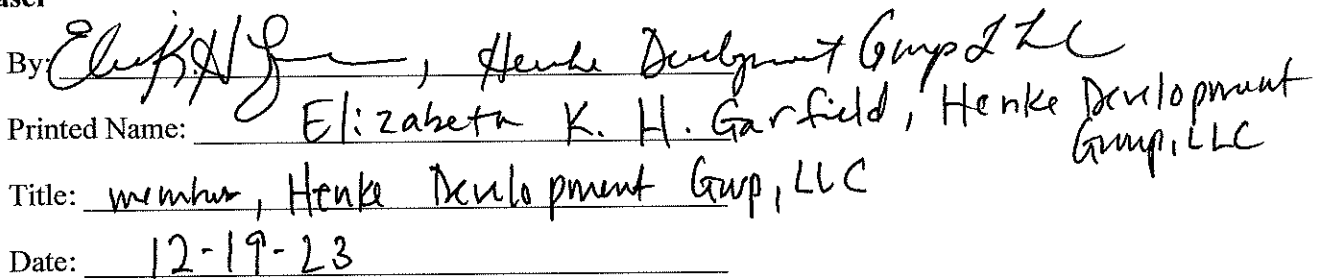 By: Henke Development Group LLC
Printed Name: Elizabeth K. H. Garfield, Henke Development
Group, LLC
Title: member, Henke Development Group, LLC
Date: 12-19-23